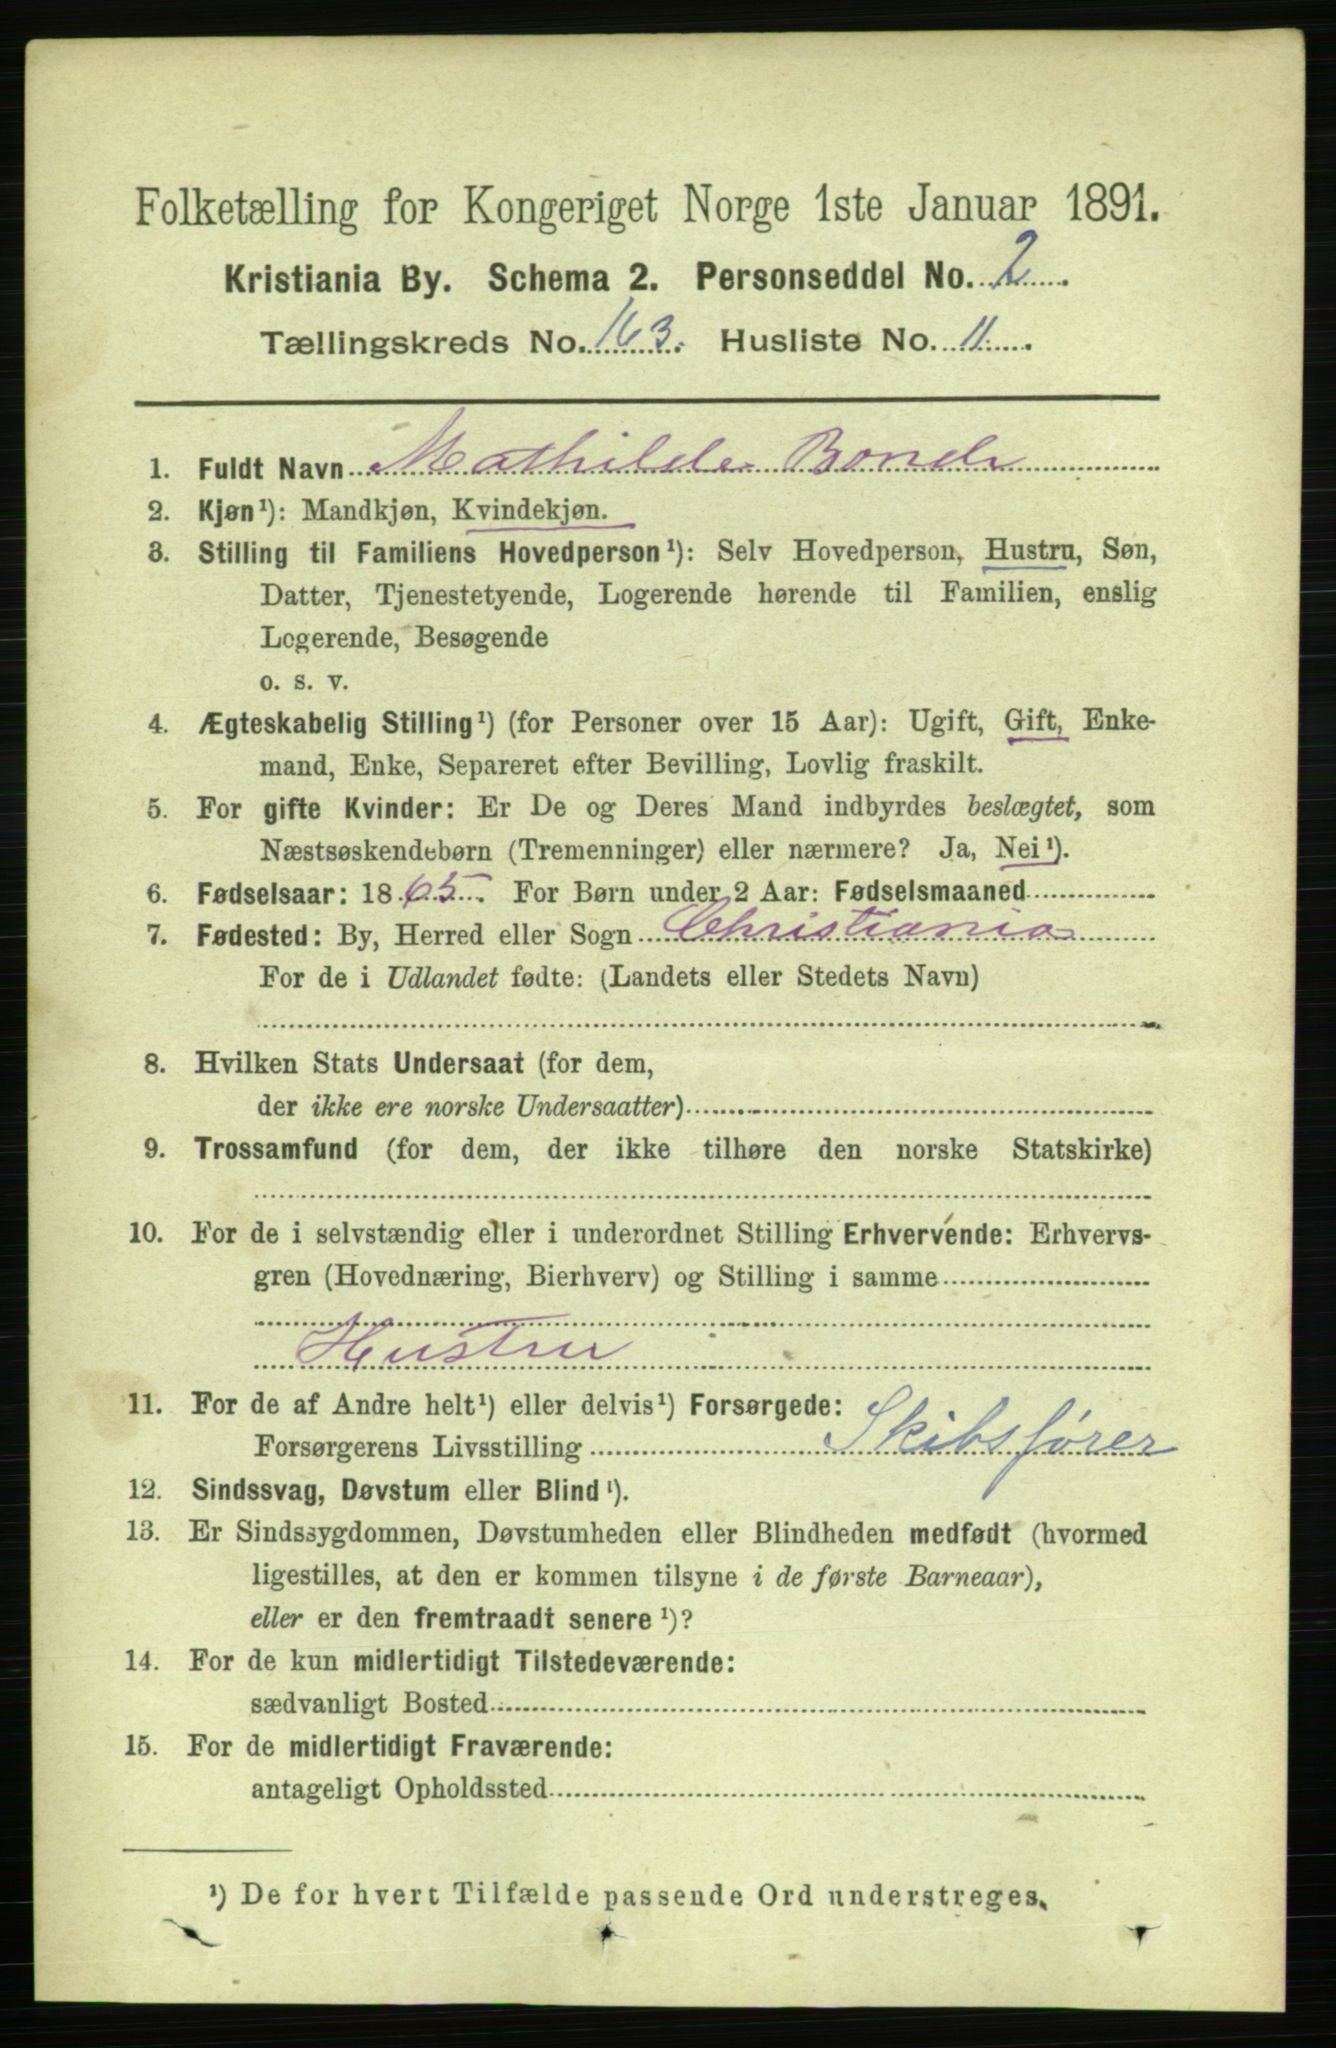 Folketælling for Kongeriget Norge 1ste Januar 1891.
Kristiania By. Schema 2. Personseddel No. 2
Tællingskreds No. 163. Husliste No. 11
1. Fuldt Navn Mathilde Bonde
2. Kjøn¹): Mandkjøn, Kvindekjøn.
3. Stilling til Familiens Hovedperson¹): Selv Hovedperson, Hustru, Søn,
Datter, Tjenestetyende, Logerende hørende til Familien, enslig
Logerende, Besøgende
o. s. v.
4. Ægteskabelig Stilling¹) (for Personer over 15 Aar): Ugift, Gift, Enke-
mand, Enke, Separeret efter Bevilling, Lovlig fraskilt.
5. For gifte Kvinder: Er De og Deres Mand indbyrdes beslægtet, som
Næstsøskendebørn (Tremenninger) eller nærmere? Ja, Nei¹).
6. Fødselsaar: 1865. For Børn under 2 Aar: Fødselsmaaned
7. Fødested: By, Herred eller Sogn Christiania
For de i Udlandet fødte: (Landets eller Stedets Navn)
8. Hvilken Stats Undersaat (for dem,
der ikke ere norske Undersaatter)
9. Trossamfund (for dem, der ikke tilhøre den norske Statskirke)
10. For de i selvstændig eller i underordnet Stilling Erhvervende: Erhvervs-
gren (Hovednæring, Bierhverv) og Stilling i samme
Hustru
11. For de af Andre helt¹) eller delvis¹) Forsørgede:
Forsørgerens Livsstilling Skibsfører
12. Sindssvag, Døvstum eller Blind¹).
13. Er Sindssygdommen, Døvstumheden eller Blindheden medfødt (hvormed
ligestilles, at den er kommen tilsyne i de første Barneaar),
eller er den fremtraadt senere¹)?
14. For de kun midlertidigt Tilstedeværende:
sædvanligt Bosted
15. For de midlertidigt Fraværende:
antageligt Opholdssted
¹) De for hvert Tilfælde passende Ord understreges.